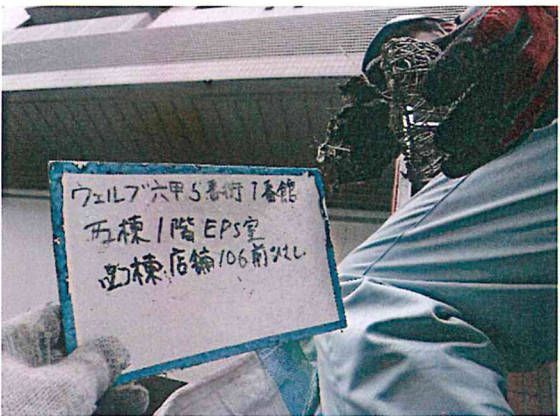 ウェルブ六甲5番街1番館
西棟1階EPS室
棟 店舗106前